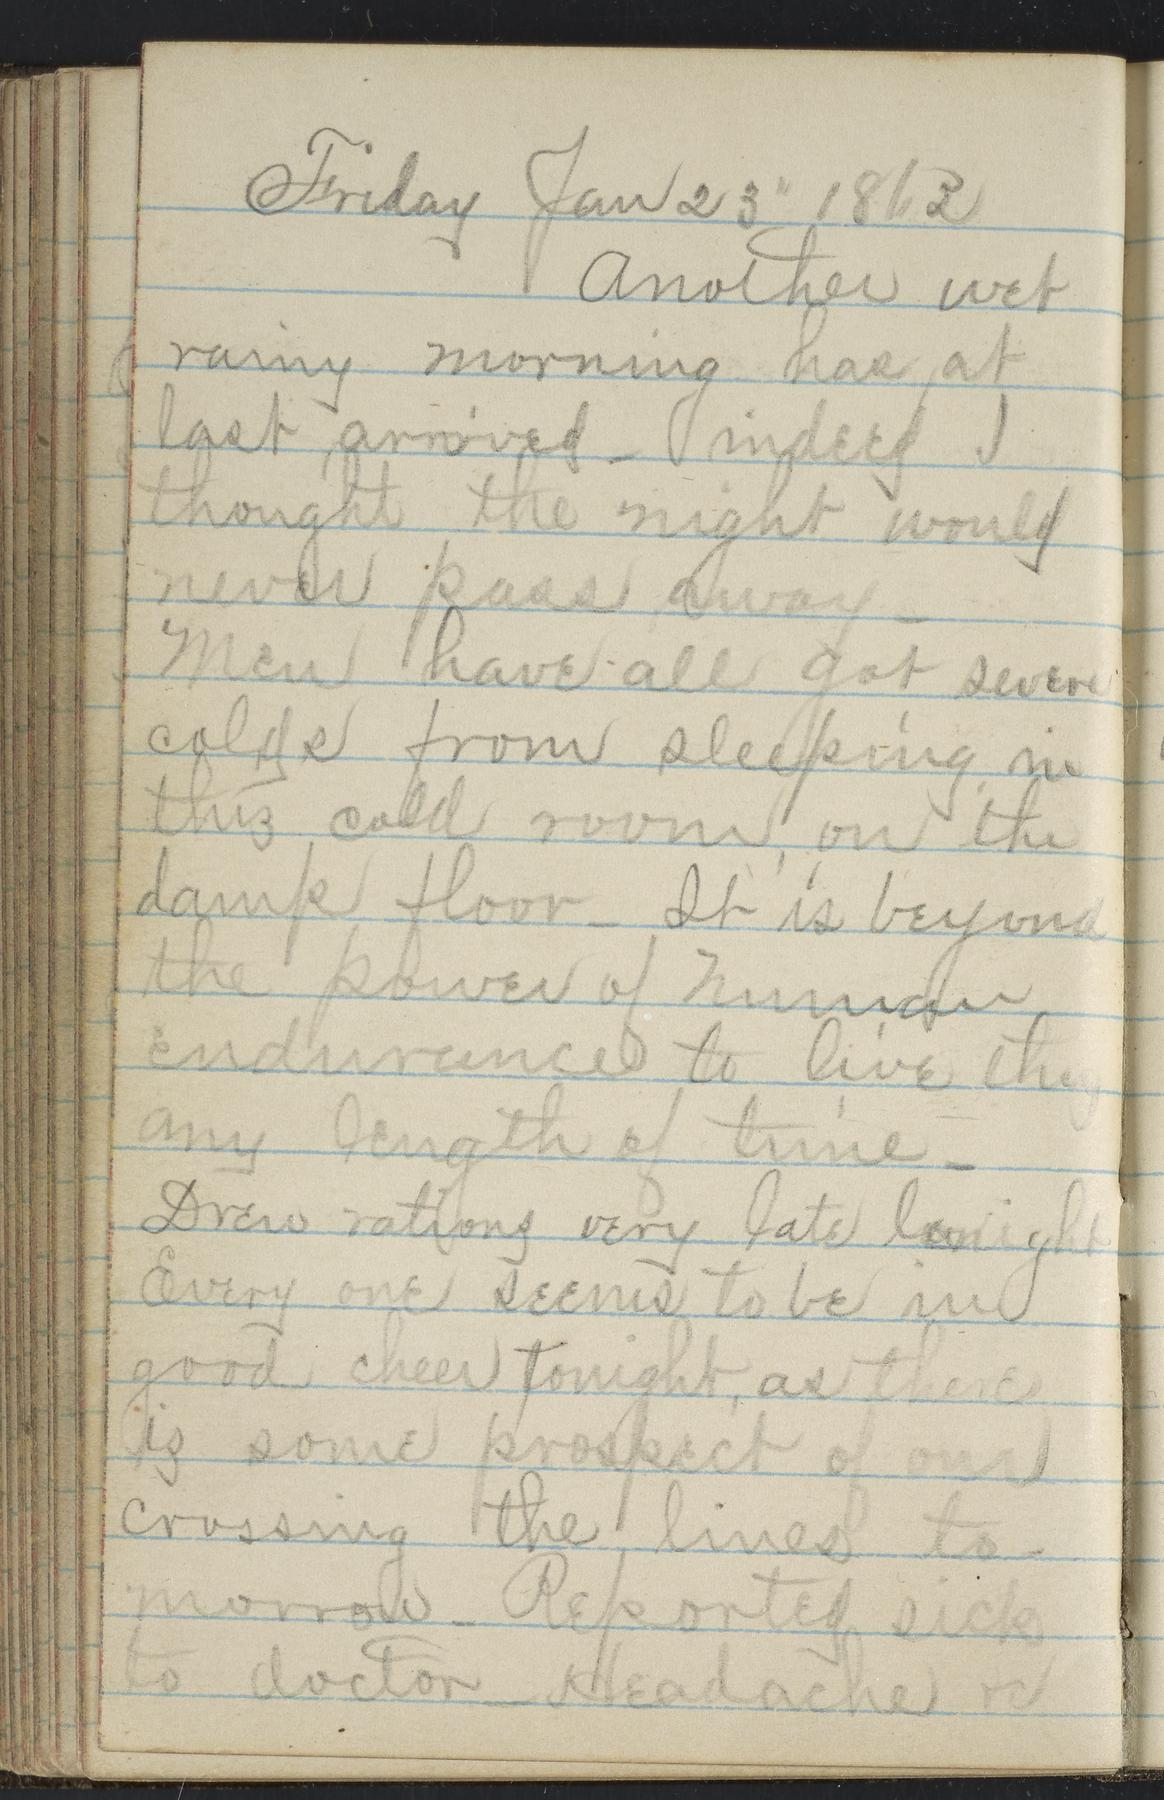 Friday Jan 23" 1863
Another wet
rainy morning has at
last arrived - indeed I
thought the night would
never pass away -
Men have all got severe
colds from sleeping in
this cold room, on the
damp floor - It is beyond
the power of human
endurance to live thus
any length of time -
Drew rations very late tonight
Every one seems to be in
good cheer tonight, as there
is some prospect of our
crossing the lines to-
morrow - Reported sick
to doctor - Headache &c